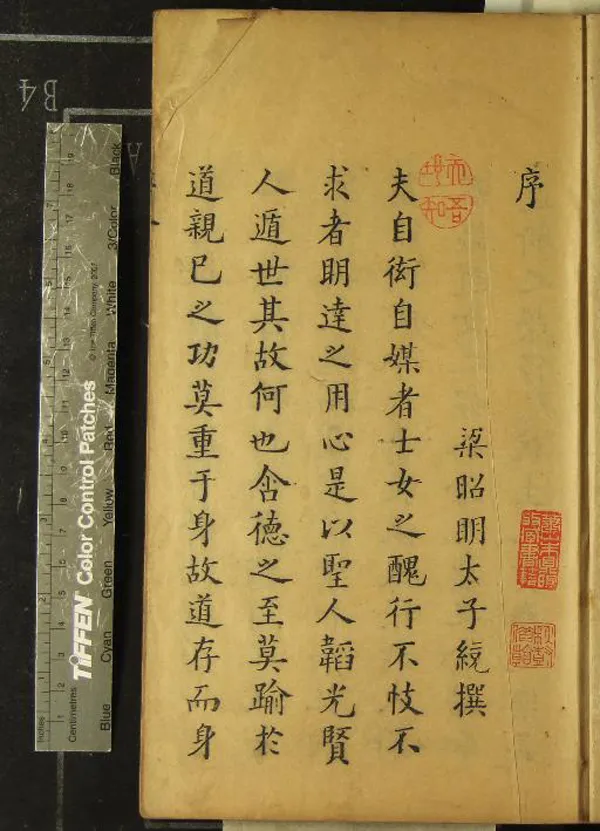 序
梁昭明太子統撰
夫自衒自媒者士女之醜行不忮不
求者明達之用心是以聖人韜光賢
人遁世其故何也含德之至莫踰於
道親己之功莫重于身故道存而身
B4
Inches
Centimetres
TIFFEN Color Control Patches
© The Tiffen Company, 2007
Blue Cyan Green Yellow Red Magenta White 3/Color Black